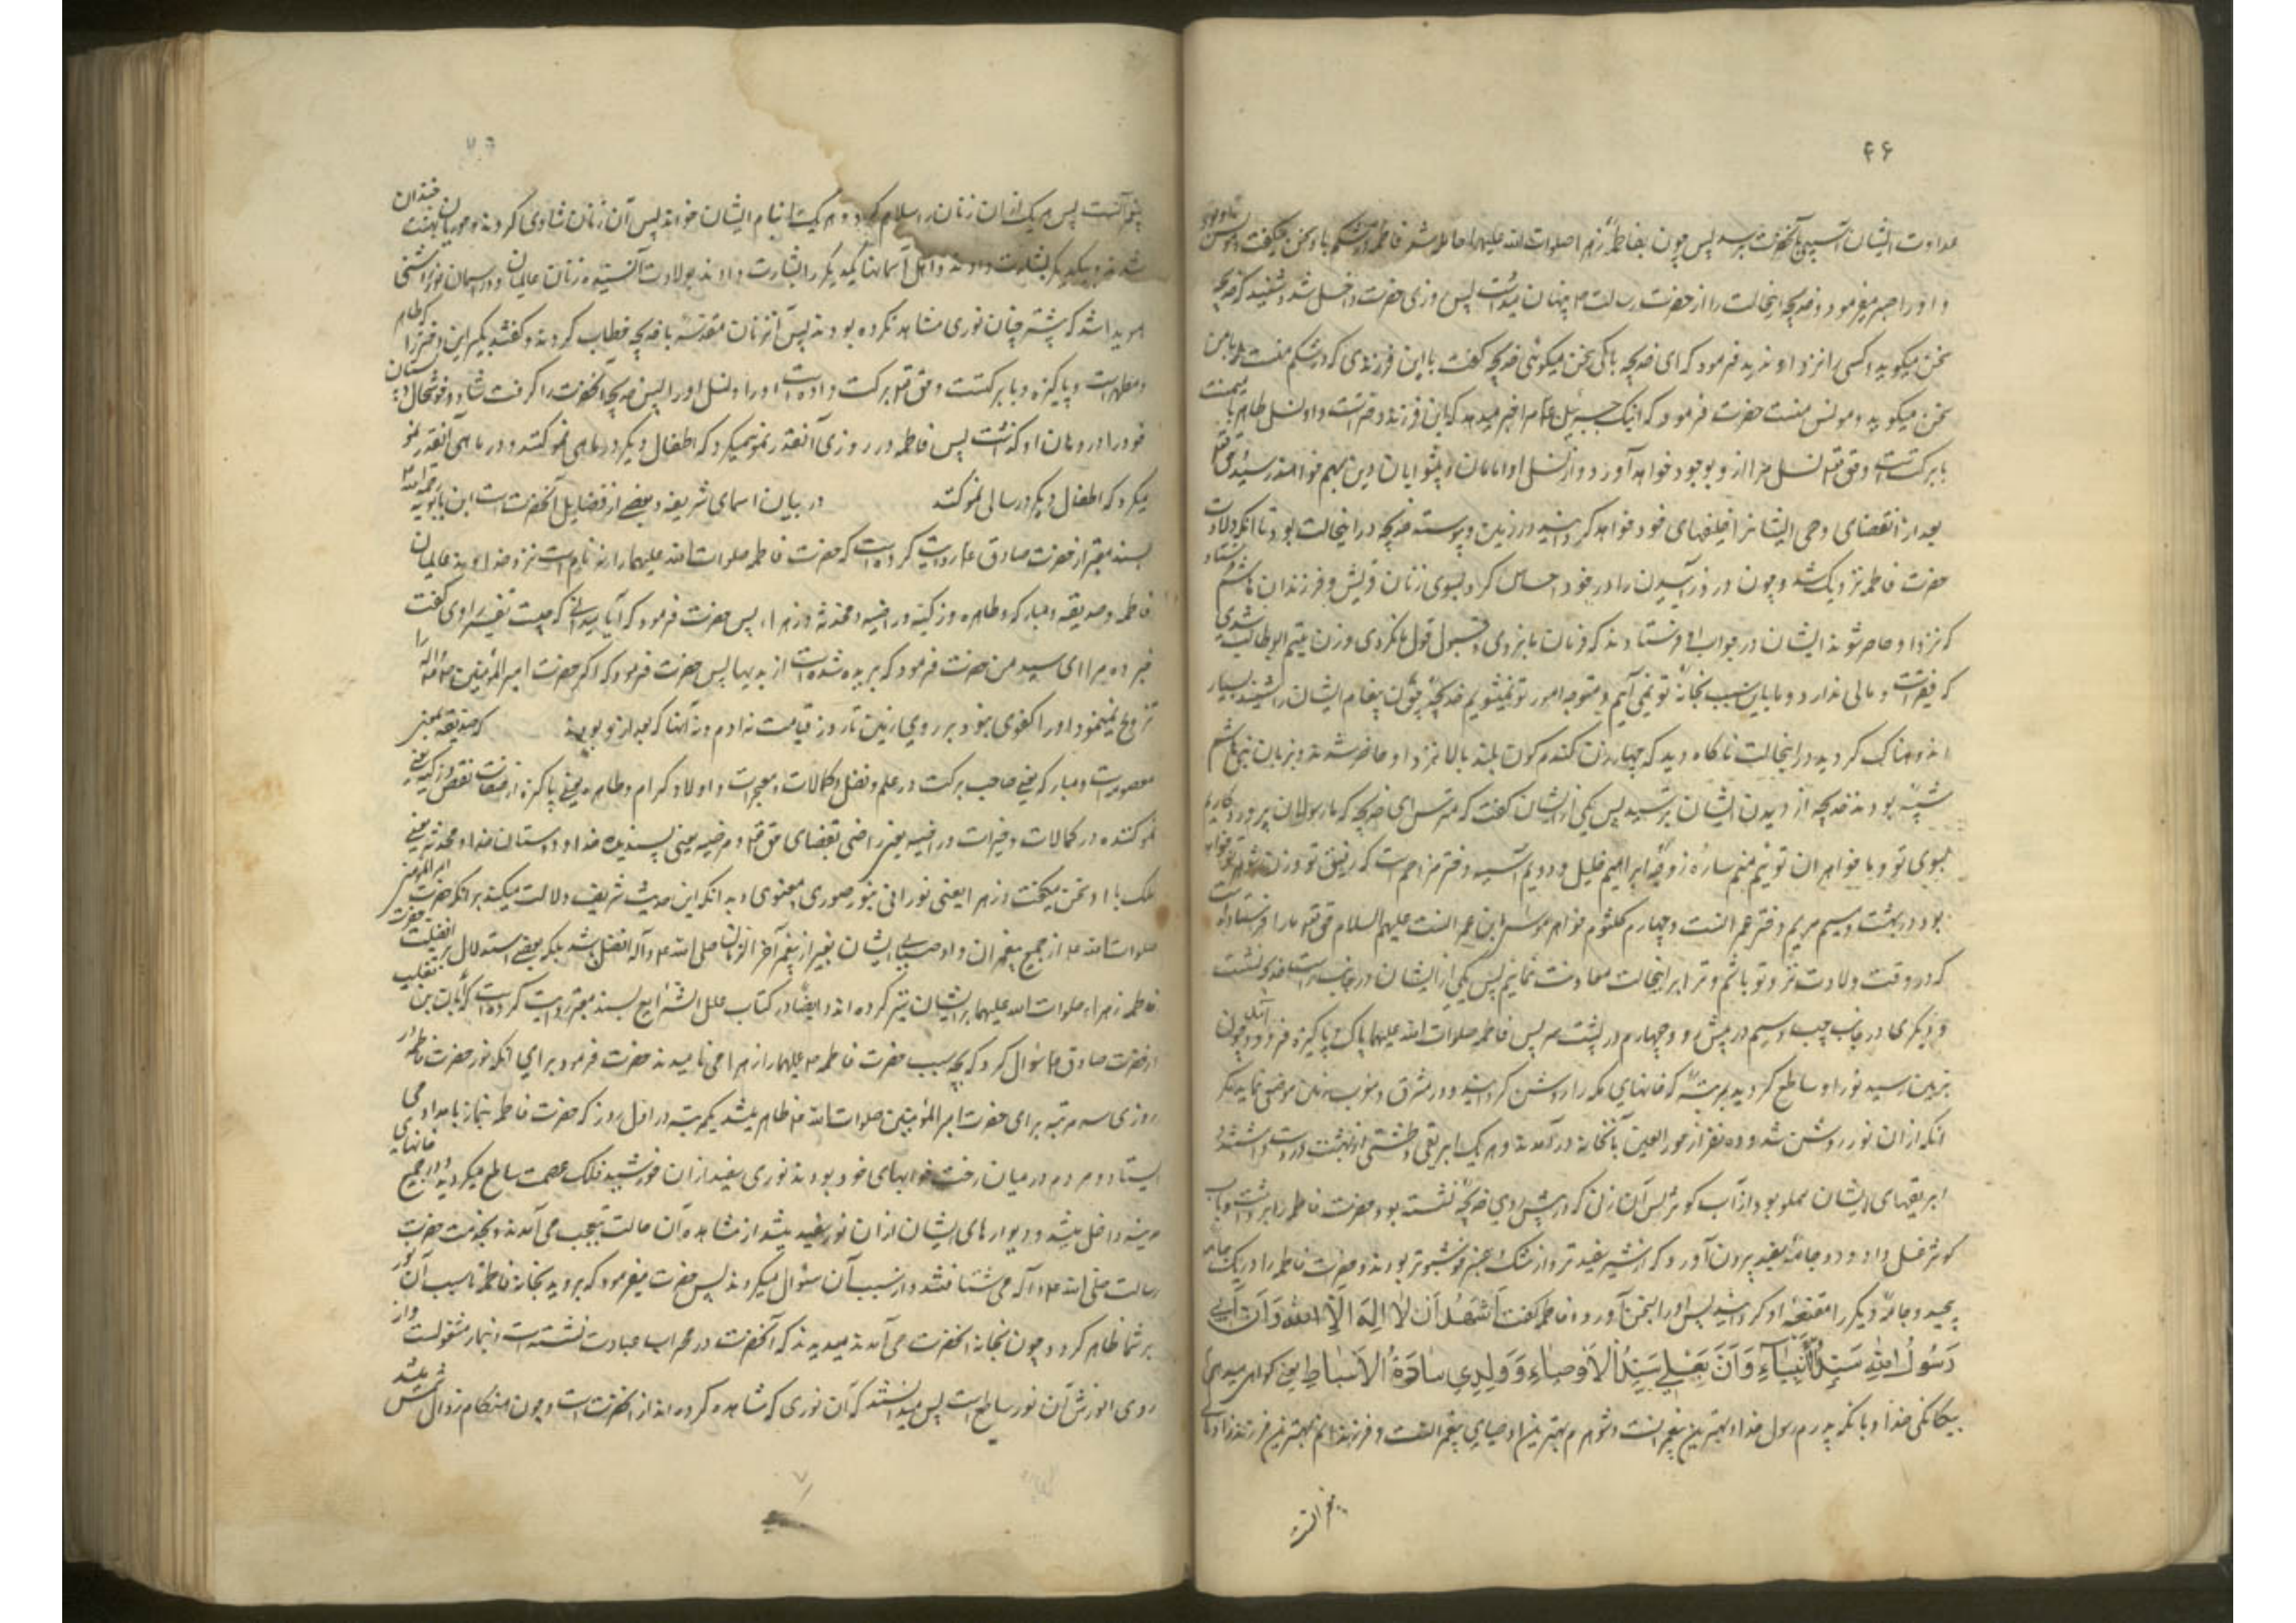 ۴۶
عداوت ایشان آسیبی بآنحضرت برسد پس چون بفاطمه زهرا صلوات الله علیها حامله شد فاطمه در شکم با او سخن میگفت و مونس او بود
و او را صبر میفرمود و خدیجه اینحالت را از حضرت رسالت ص پنهان میداشت پس روزی حضرت داخل شد و شنید که خدیجه
سخن میگوید و کسی را نزد او ندید فرمود که ای خدیجه با کی سخن میگوئی خدیجه گفت با این فرزندی که در شکم منست با من
سخن میگوید و مونس منست حضرت فرمود که اینک جبرئیل مرا خبر میدهد که این فرزند دخترست و او نسل طاهر با میمنت
با برکتست و حق تعالی نسل مرا از او بوجود خواهد آورد و از نسل او امامان و پیشوایان دین بهم خواهند رسید و حق تعالی
بعد از انقضای وحی ایشانرا خلیفهای خود خواهد گردانید در زمین و پیوسته خدیجه در اینحالت بود تا آنکه ولادت
حضرت فاطمه نزدیک شد و چون درد زائیدن را در خود احساس کرد بسوی زنان قریش و فرزندان هاشم فرستاد
که نزد او حاضر شوند ایشان در جواب او فرستادند که فرمان ما نبردی و قبول قول ما نکردی و زن یتیم ابوطالب شدی
که فقیرست و مالی ندارد و ما باین سبب بخانهٔ تو نمی آئیم و متوجه امور تو نمیشویم خدیجه چون پیغام ایشان را شنید بسیار
اندوهناک گردید در اینحالت ناگاه دید که چهار زن گندم گون بلند بالا نزد او حاضر شدند و بزنان بنی هاشم
شبیه بودند خدیجه از دیدن ایشان بترسید پس یکی از ایشان گفت که مترس ای خدیجه که ما رسولان پروردگاریم
بسوی تو و ما خواهران توئیم منم ساره زوجهٔ ابراهیم خلیل و دویم آسیه دختر مزاحم است که رفیق تو و زن شوهر تو خواهد
بود در بهشت و سیم مریم دختر عمرانست و چهارم کلثوم خواهر موسی ابن عمرانست علیهم السلام حق تعالی ما را فرستاده است
که در وقت ولادت نزد تو باشیم و ترا بر اینحالت معاونت نمائیم پس یکی از ایشان در جانب راست خدیجه نشست
و دیگری در جانب چپ و سیم در پیش رو و چهارم در پشت سر پس فاطمه صلوات الله علیها پاک و پاکیزه فرود آمد و چون
بزمین رسید نور او ساطع گردید بمرتبهٔ که خانهای مکه را روشن گردانید و در مشرق و مغرب زمین موضعی نماند مگر
آنکه از آن نور روشن شد و ده نفر از حور العین بآنخانه در آمدند و هر یک ابریقی و طشتی از بهشت در دست داشتند و
ابریقهای ایشان مملو بود از آب کوثر پس آن زن که در پیش روی خدیجه نشسته بود حضرت فاطمه را برداشت و بآب
کوثر غسل داد و دو جامهٔ سفید بیرون آورد که از شیر سفید تر و از مشک و عنبر خوشبوتر بودند و حضرت فاطمه را در یک جامه
پیچید و جامهٔ دیگر را مقنعهٔ او گردانید پس او را بسخن آورد و فاطمه گفت اَشْهَدُ اَنْ لا اِلهَ اِلَّا اللهُ وَ اَنَّ اَبی
رَسُولُ اللهِ سَیِّدُ الْاَنْبِیآءِ وَ اَنَّ بَعْلی سَیِّدُ الْاَوْصِیآءِ وَ وُلْدی سادَةُ الْاَسْباطِ یعنی گواهی میدهم
بیگانگی خدا و بآنکه پدرم رسول خدا و بهترین پیغمبرانست و شوهرم بهترین اوصیای پیغمبرانست و فرزندانم بهترین فرزندزادهای
پیغمبرانست
پیغمبرانست پس هر یک از آن زنان را سلام کرد و هر یک را بنام ایشان خواند پس آن زنان شادی کردند و حوریان بهشت خندان
شدند و یکدیگر را بشارت دادند و اهل آسمانها یکدیگر را بشارت دادند بولادت آن سیده زنان عالمیان و در آسمان نور روشنی
هویدا شد که پیشتر چنان نوری مشاهده نکرده بودند پس آن زنان مقدسه با خدیجه خطاب کردند و گفتند بگیر این دختر را که طاهر
و مطهرست و پاکیزه و با برکتست و حق تعالی برکت داده است او را و نسل او را پس خدیجه آنحضرت را گرفت شاد و خوشحال و پستان
خود را در دهان او گذاشت پس فاطمه در روزی آنقدر نمو میکرد که اطفال دیگر در ماهی نمو کنند و در ماهی آنقدر نمو
میکرد که اطفال دیگر در سالی نمو کنند در بیان اسمای شریفه و بعضی از فضایل آنحضرت است ابن بابویه رحمه الله
بسند معتبر از حضرت صادق ع روایت کرده است که حضرت فاطمه صلوات الله علیها را نه نام است نزد خداوند عالمیان
فاطمه و صدیقه و مبارکه و طاهره و زکیه و راضیه و محدثه و زهرا، پس حضرت فرمود که آیا میدانی که چیست تفسیر راوی گفت
خبر ده مرا ای سید من حضرت فرمود که بریده شده است از بدیها پس حضرت فرمود که اگر حضرت امیر المؤمنین او را
تزویج نمینمود او را کفوی نبود بر روی زمین تا روز قیامت نه آدم و نه آنها که بعد از او بودند که صدیقه بمعنی
معصومه است و مبارکه یعنی صاحب برکت در علم و فضل و کمالات و معجزات و اولاد کرام و طاهره یعنی پاکیزه از صفات نقص و زکیه یعنی
نمو کننده در کمالات و خیرات و راضیه یعنی راضی بقضای حق تعالی و مرضیه یعنی پسندیدهٔ خدا و دوستان خدا و محدثه یعنی
ملک با او سخن میگفت و زهرا یعنی نورانی بنور صوری و معنوی و بدانکه این حدیث شریف دلالت میکند بر آنکه حضرت امیر المؤمنین
صلوات الله علیه از جمیع پیغمبران و اوصیای ایشان بغیر از پیغمبر آخر الزمان صلی الله علیه و آله افضل باشد بلکه بعضی استدلال بر افضلیت حضرت
فاطمه زهراء صلوات الله علیها بر ایشان نیز کرده اند و ایضا در کتاب علل الشرایع بسند معتبر روایت کرده است که ابان بن تغلب
از حضرت صادق ع سؤال کرد که بچه سبب حضرت فاطمه علیها را زهرا می نامیدند حضرت فرمود برای آنکه نور حضرت فاطمه در
روزی سه مرتبه برای حضرت امیر المؤمنین صلوات الله علیه ظاهر میشد یکمرتبه در اول روز که حضرت فاطمه بنماز بامداد می
ایستاد و مردم در میان رخت خوابهای خود بودند نوری سفید از آن خورشید فلک عصمت ساطع میگردید و در جمیع خانهای
مدینه داخل میشد و دیوارهای ایشان از آن نور سفید میشد از مشاهده آن حالت بتعجب می آمدند و بخدمت حضرت
رسالت صلی الله علیه و آله می شتافتند و از سبب آن سؤال میکردند پس حضرت میفرمود که بروید بخانهٔ فاطمه تا سبب آن نور
بر شما ظاهر گردد و چون بخانهٔ آنحضرت می آمدند میدیدند که آنحضرت در محراب عبادت نشسته است و بنماز مشغولست و از
روی انورش آن نور ساطع است پس میدانستند که آن نوری که مشاهده کرده اند از آنحضرت است و چون هنگام زوال شمس میشد